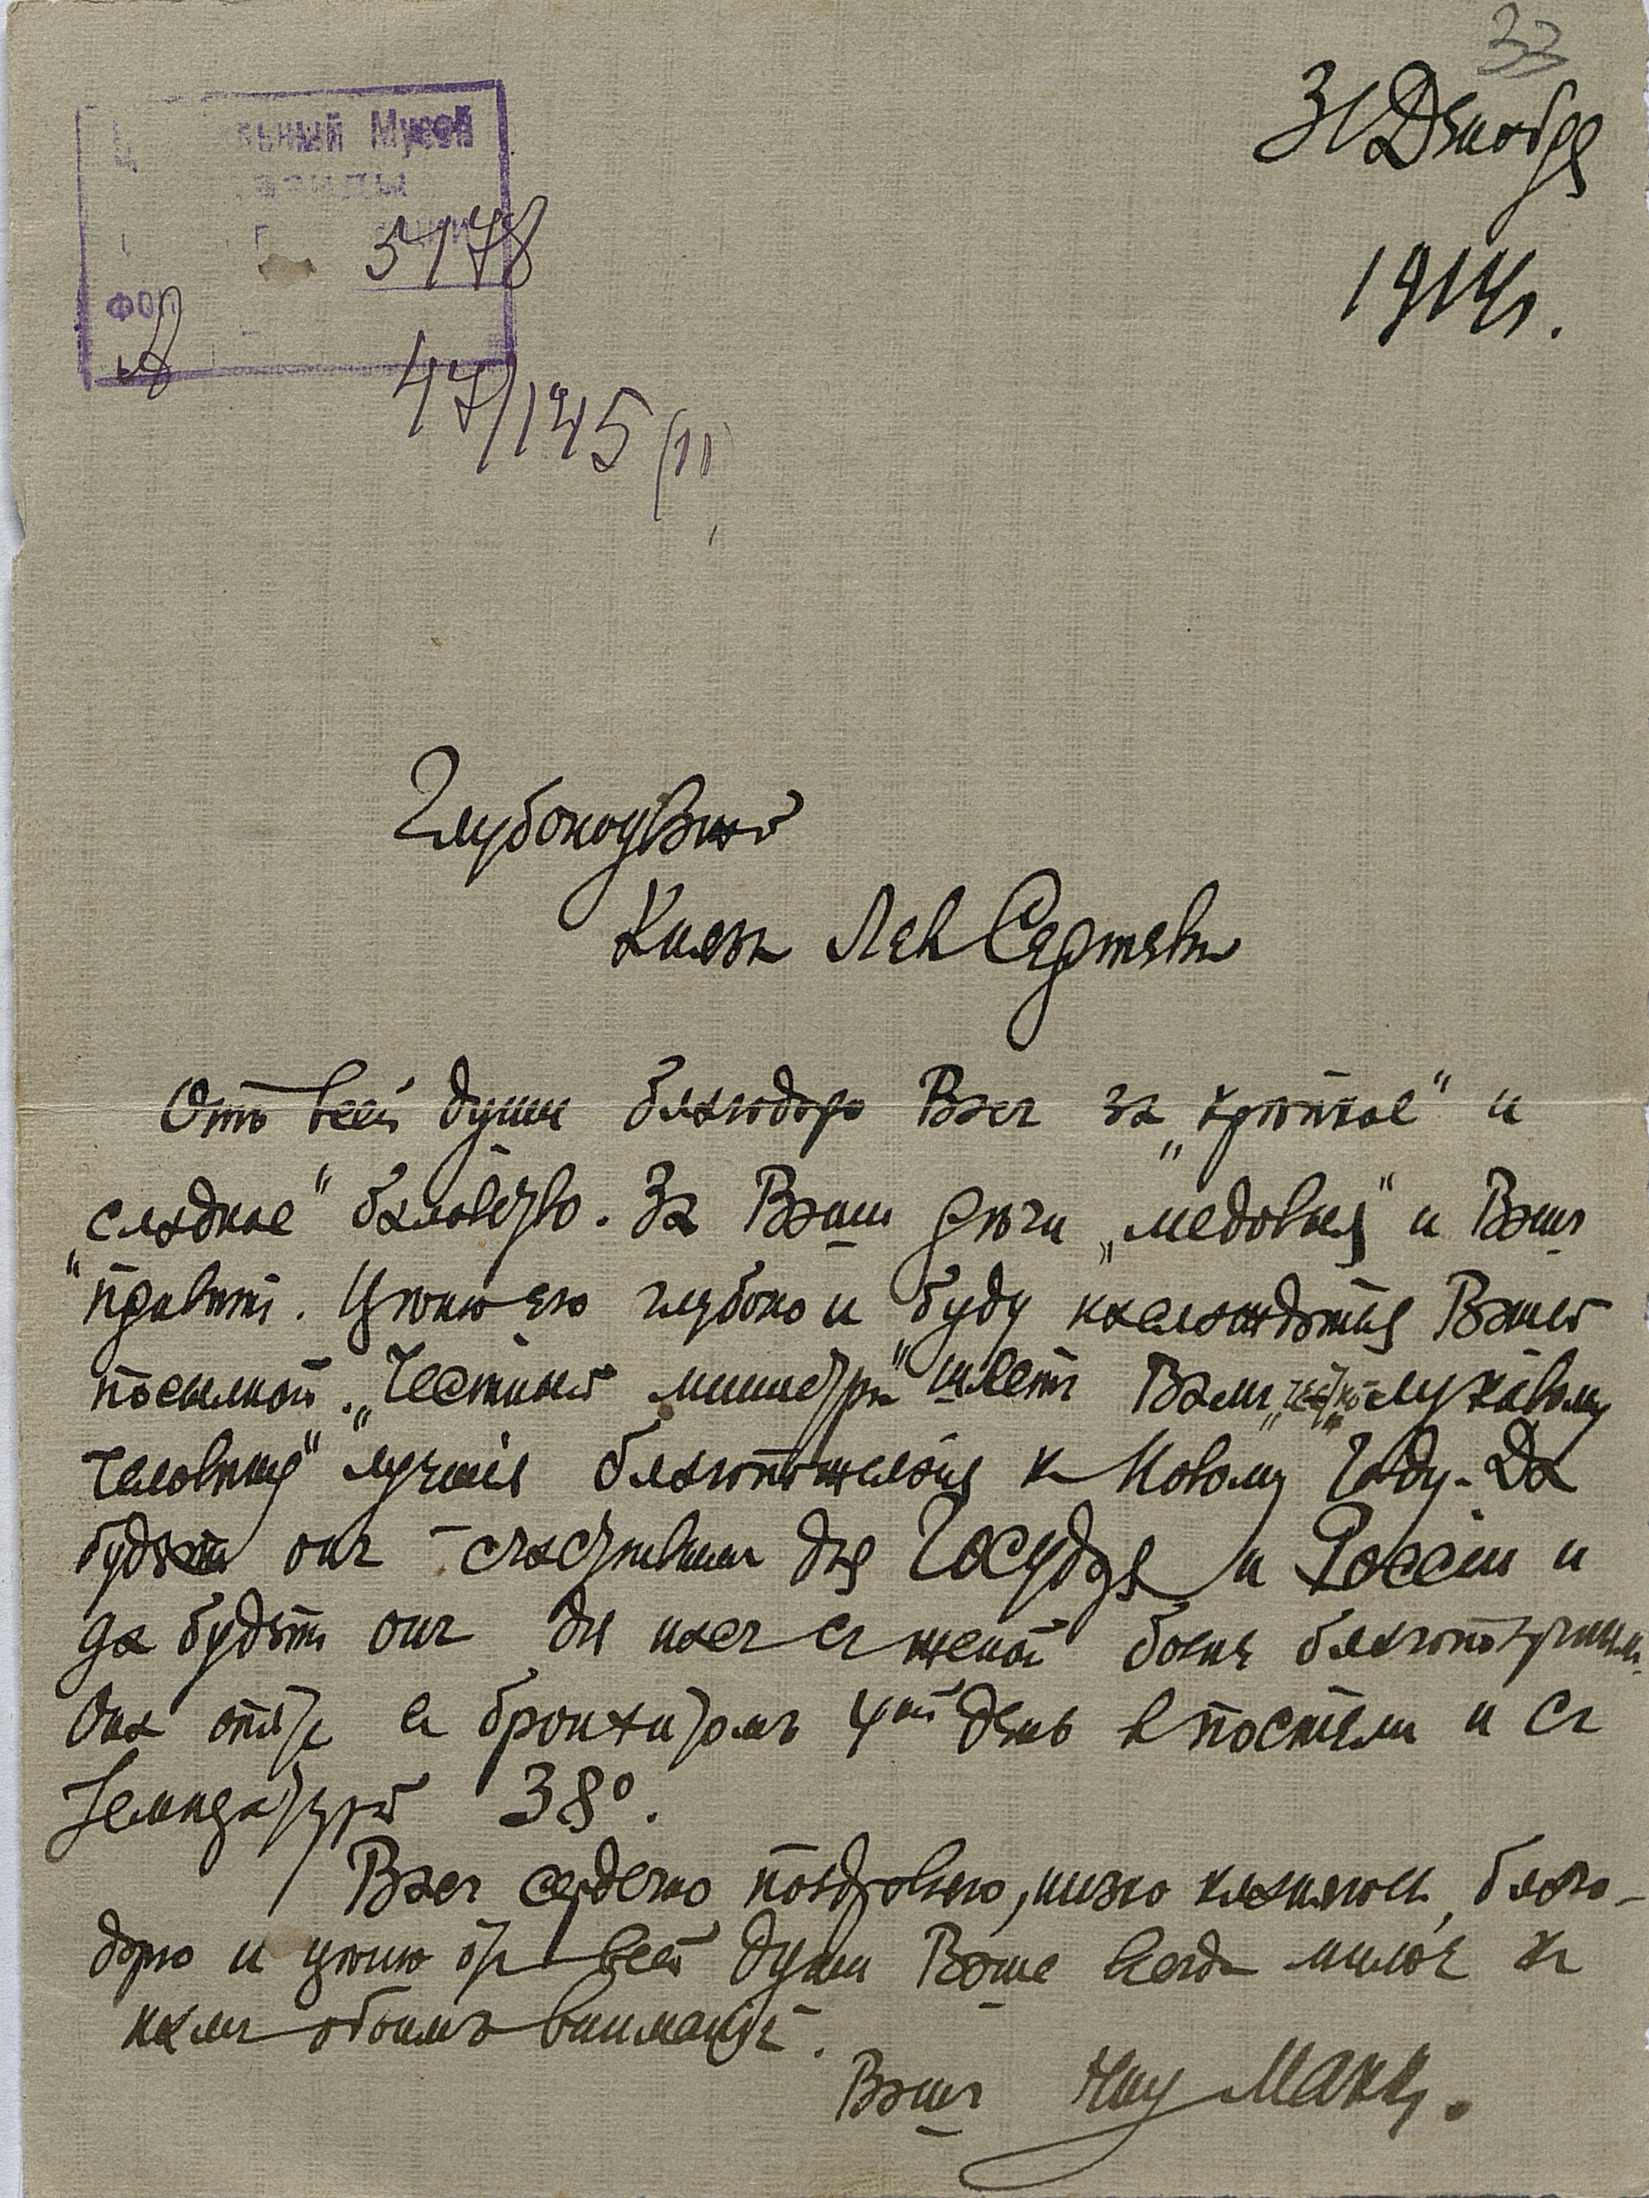 33
31 Декабря
1914 г.
Музей
5178
47/1245 (11)
Глубокоув
Князь Лев Сергеевич
Отъ всей души благодарю Васъ за „крѣпкое" и
„сладкое" баловство. За Ваши рѣчи „медовыя" и Вашъ
привѣтъ. Цѣню его глубоко и буду наслаждаться Вашей
посылкой. „Честный министръ" шлетъ Вамъ лукавому
человѣку" лучшія благопожеланія къ Новому Году. Да
будетъ онъ счастливымъ для Государя и Россіи и
да будетъ онъ для насъ съ женой болѣе благополучнымъ.
Она опять съ бронхитомъ 4ый день в постели и съ
температурой 38°.
Васъ сердечно поздравляю, низко кланяюсь, благо-
дарю и цѣню отъ всей души Ваше всегда милое къ
намъ обоимъ вниманіе.
Вашъ